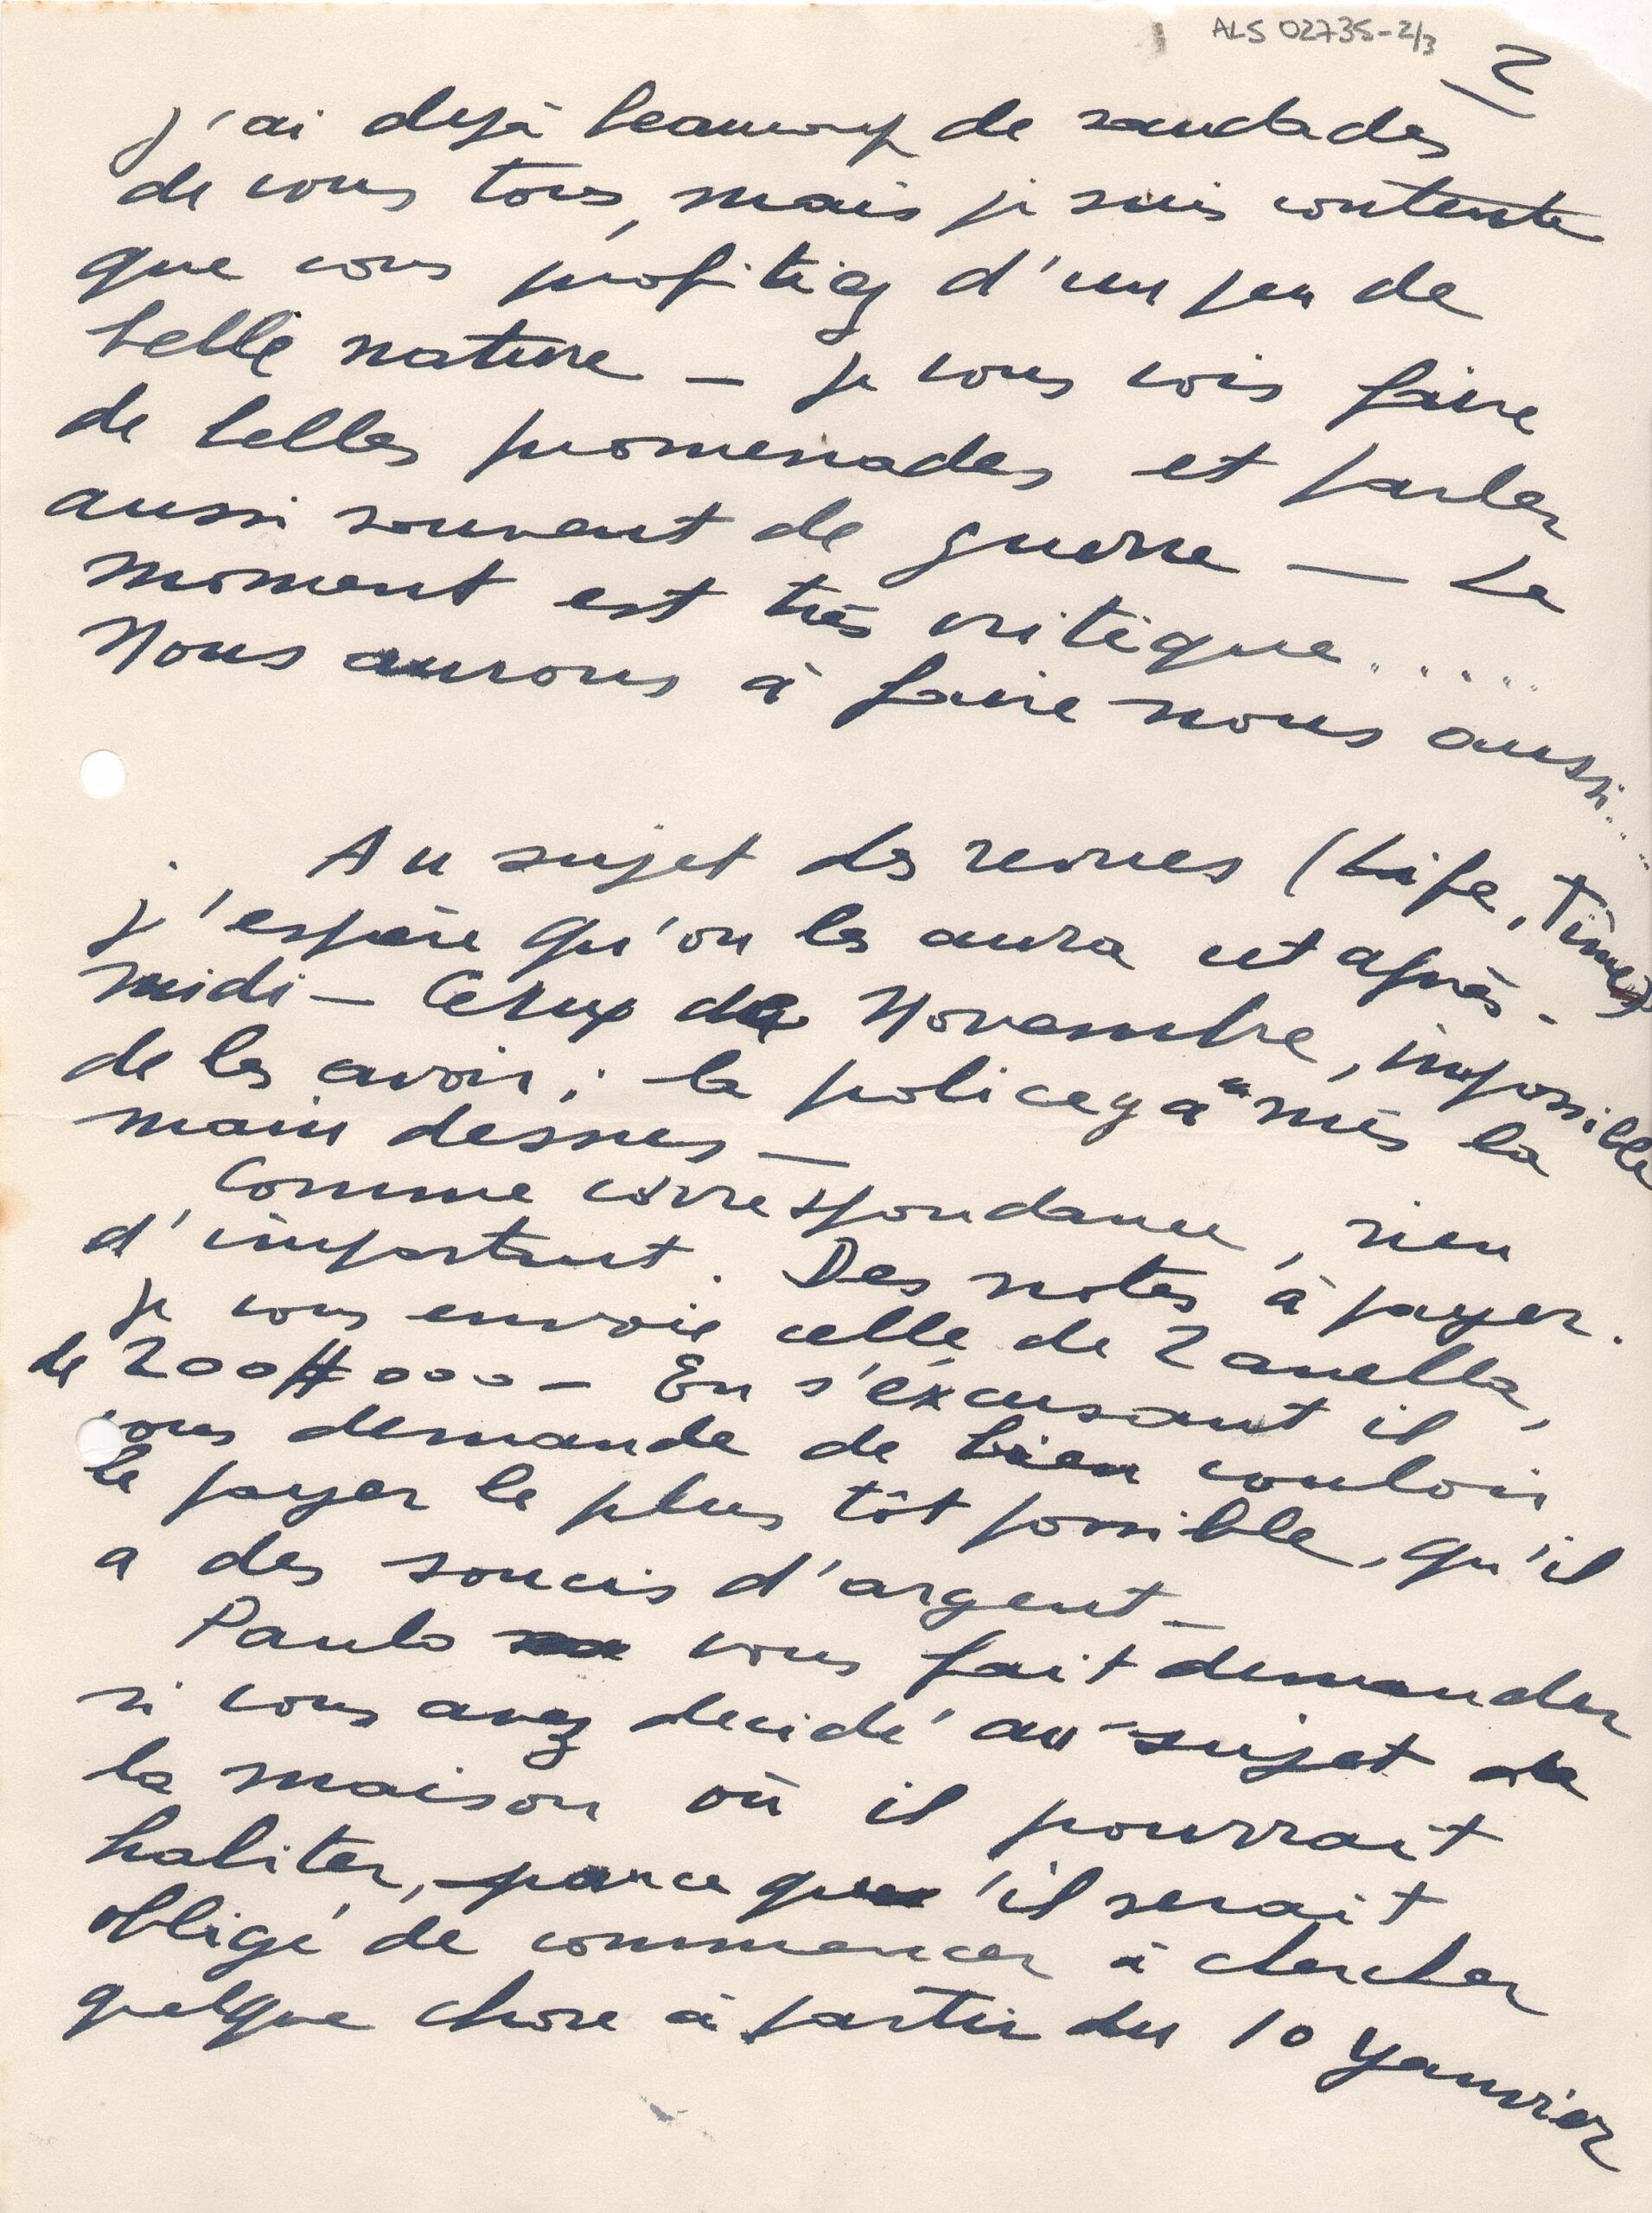 ALS 02735-2/3
2
j'ai dejà beaucoup de saudades
de vous tous, mais je suis contente
que vous profitiez d'un peu de
belle nature — je vous vois faire
de belles promenades et parler
aussi souvent de guerre — Le
moment est très critique.....
Nous aurons à faire nous aussi.....
Au sujet des revues (Life, Times)
j'espère qu'on les aura cet après-
midi — Ceux de Novembre, impossible
de les avoir; la police y a mis la
main dessus —
Comme correspondance, rien
d'important. Des notes à payer.
je vous envoie celle de Zanella,
de 200$000 — En s'éxcusant il
vous demande de bien vouloir
le payer le plus tôt possible, qu'il
a des soucis d'argent —
Paulo vous fait demander
si vous avez decidé au sujet de
la maison où il pourrait
habiter, parce qu'il serait
obligé de commencer à chercher
quelque chose à partir du 10 Yanvier